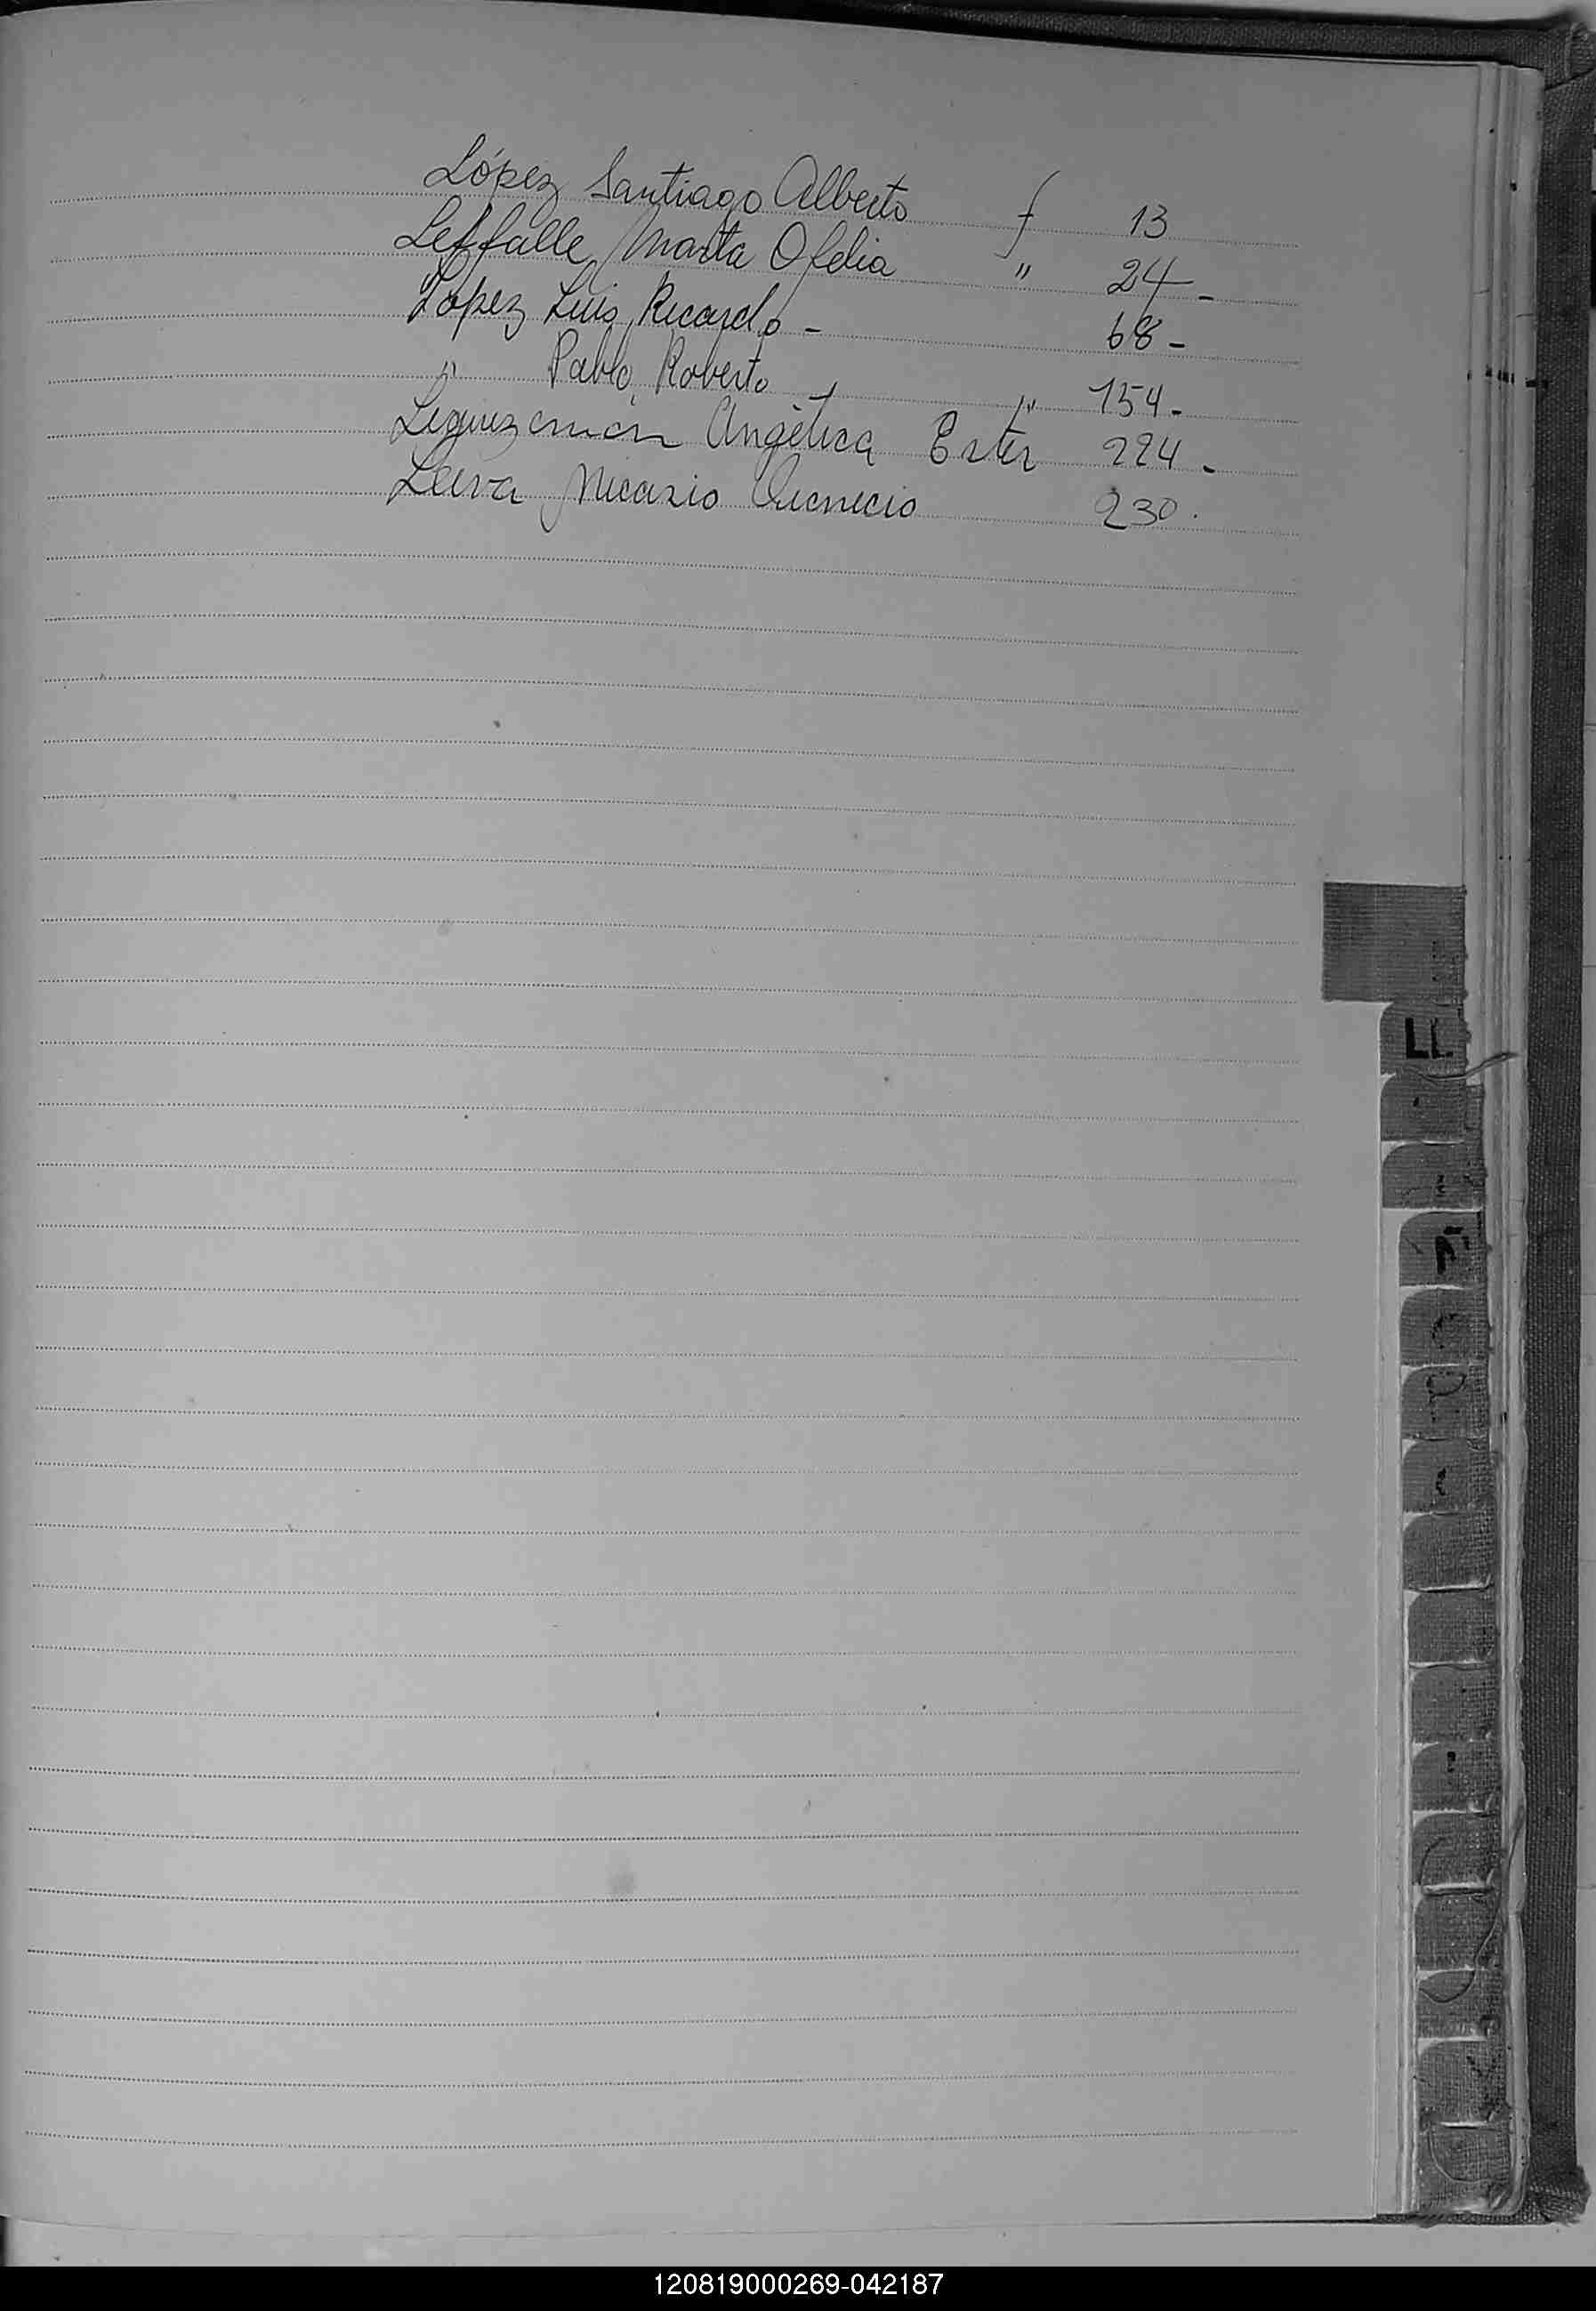 López Santiago Alberto f 13
Leffalle Marta Ofelia " 24-
López Luis Ricardo - 68-
" Pablo Roberto - " 154-
Leguizamón Angélica Ester 224-
Leiva Nicasio 230.
LL
120819000269-042187